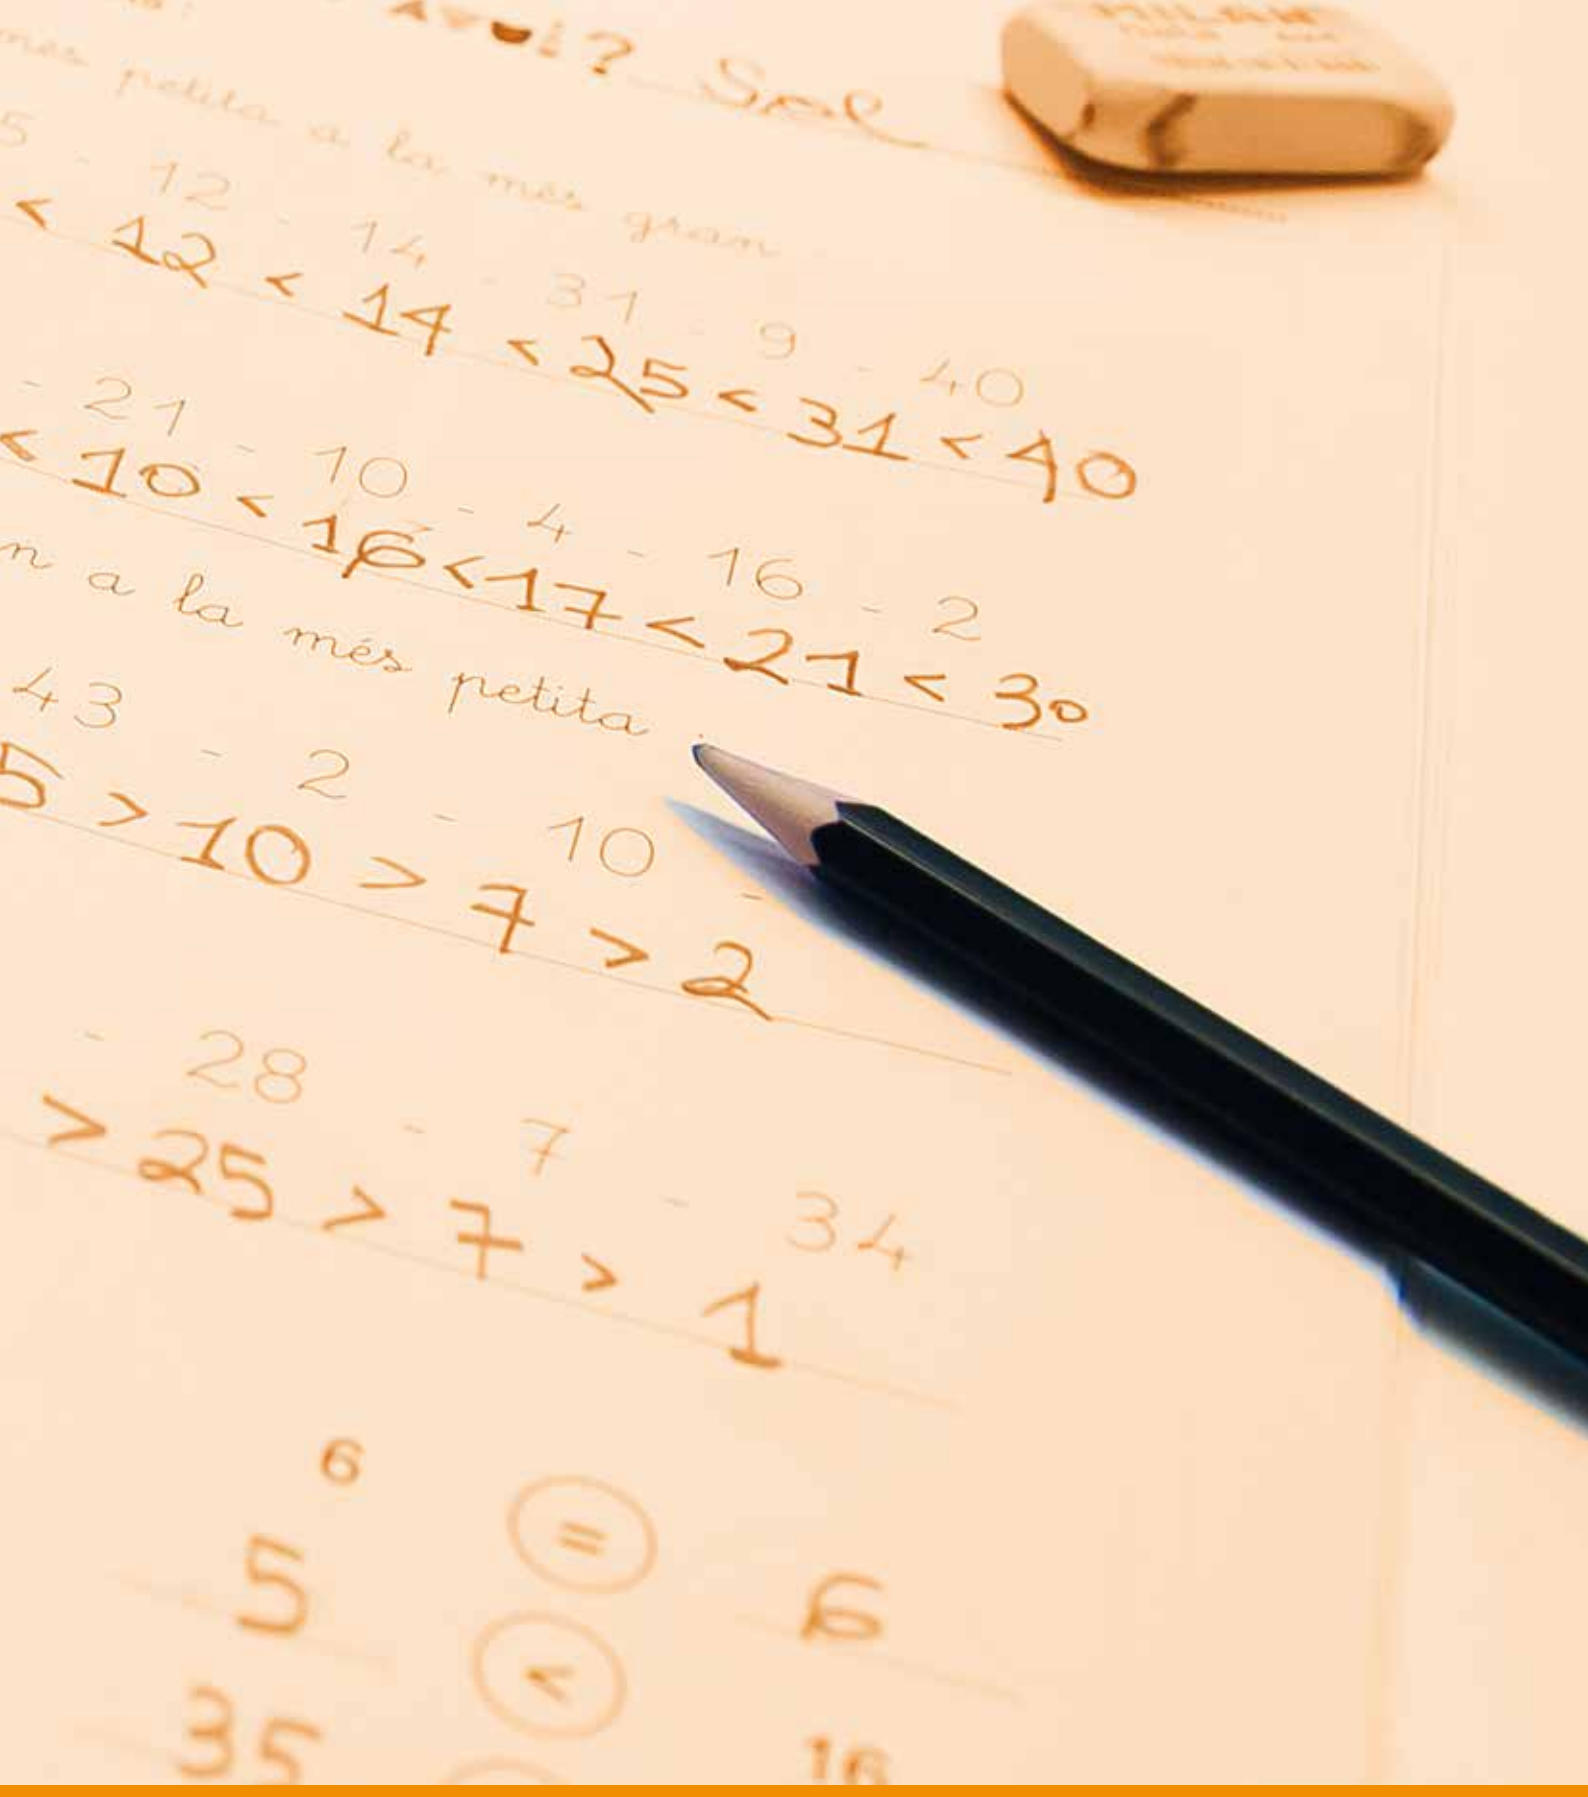 ? Sol
MILAN
petita a la més gran
5 - 12 - 14 - 31 - 9 - 40
< 12 < 14 < 25 < 31 < 40
- 21 - 10 - 4 - 16 - 2
< 10 < 16 < 17 < 21 < 30
n a la més petita
43 - 2 - 10 -
5 > 10 > 7 > 2
- 28 - 7 - 34
> 25 > 7 > 1
6 =
5 < 6
35 16